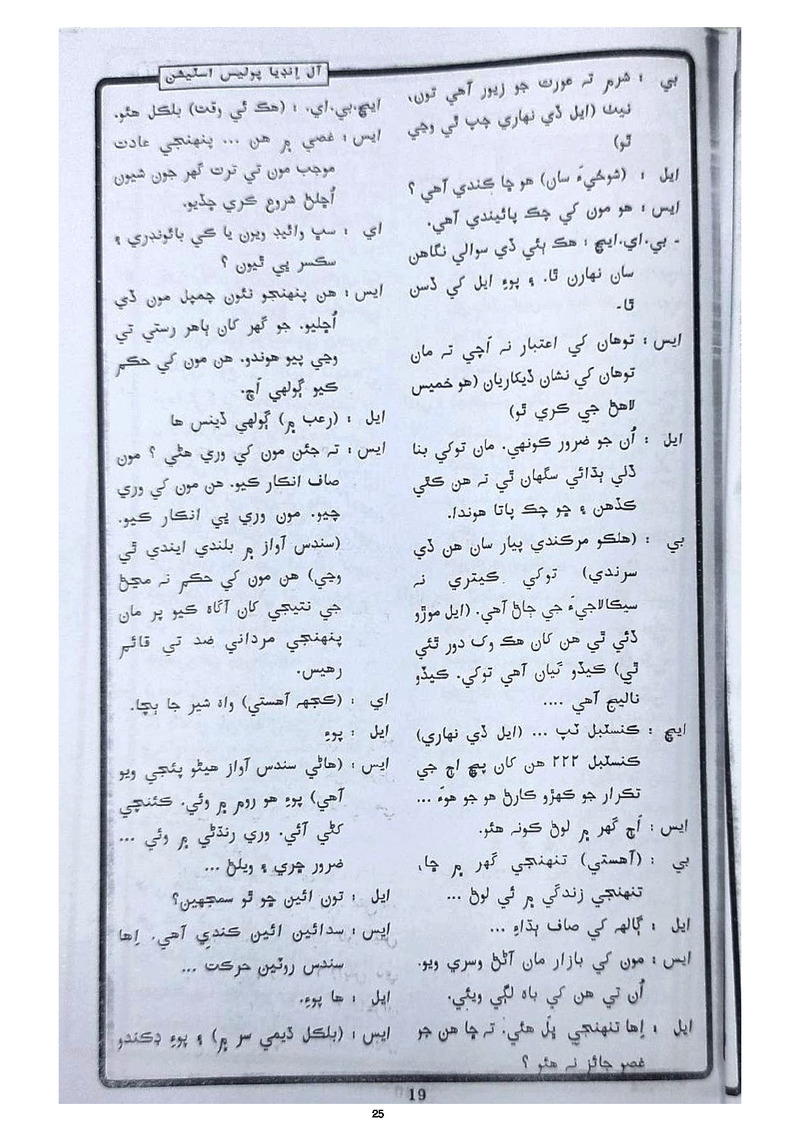 آل انڊيا پوليس اسٽيشن
بي : شرم تہ عورت جو زيور آهي تون،
نيٺ (ايل ڏي نهاري چپ ٿي وڃي
ٿو)
ايل : (شوخيءَ سان) هو ڇا ڪندي آهي ؟
ايس : هو مون کي چڪ پائيندي آهي.
- بي.اي.ايڇ : هڪ ٻئي ڏي سوالي نگاهن
سان نهارن ٿا. ۽ پوءِ ايل کي ڏسن
ٿا-
ايس : توهان کي اعتبار نہ اَچي تہ مان
توهان کي نشان ڏيکاريان (هو خميس
لاهڻ جي ڪري ٿو)
ايل : اُن جو ضرور ڪونهي. مان توکي بنا
ڏلي ٻڌائي سگهان ٿي تہ هن ڪٿي
ڪڏهن ۽ ڇو چڪ پاتا هوندا.
بي : (هلڪو مرڪندي پيار سان هن ڏي
سرندي) توکي ڪيتري نہ
سيڪالاجيءَ جي ڄاڻ آهي. (ايل موڙو
ڏئي ٿي هن کان هڪ وک دور ٿئي
ٿي) ڪيڏو گيان آهي توکي. ڪيڏو
ناليج آهي ....
ايڇ : ڪنسٽبل ٽپ ... (ايل ڏي نهاري)
ڪنسٽبل ۲۲۲ هن کان پڇ اڄ جي
تڪرار جو ڪهڙو ڪارڻ هو جو هوءَ ...
ايس : اَڄ گهر ۾ لوڻ ڪونہ هئو.
بي : (آهستي) تنهنجي گهر ۾ ڇا،
تنهنجي زندگي ۾ ئي لوڻ ...
ايل : ڳالهہ کي صاف ٻڌاءِ ...
ايس : مون کي بازار مان آڻڻ وسري ويو.
اُن تي هن کي باه لڳي ويئي.
ايل : اِها تنهنجي ڀل هئي. تہ ڇا هن جو
غصو جائز نہ هئو ؟
ايڇ.بي.اي. : (هڪ ئي وقت) بلڪل هئو.
ايس : غصي ۾ هن ... پنهنجي عادت
موجب مون تي ترت گهر جون شيون
اُڇلڻ شروع ڪري ڇڏيو.
اي : سڀ وائيڊ ويون يا ڪي بائونڊري ۽
سڪسر پي ٿيون ؟
ايس : هن پنهنجو نئون چمپل مون ڏي
اُڇليو. جو گهر کان ٻاهر رستي تي
وڃي پيو هوندو. هن مون کي حڪم
ڪيو ڳولهي اَچ.
ايل : (رعب ۾) ڳولهي ڏينس ها
ايس : تہ جئن مون کي وري هڻي ؟ مون
صاف انڪار ڪيو. هن مون کي وري
چيو. مون وري پي انڪار ڪيو.
(سندس آواز ۾ بلندي ايندي ٿي
وڃي) هن مون کي حڪم نہ مڃڻ
جي نتيجي کان آگاه ڪيو پر مان
پنهنجي مرداني ضد تي قائم
رهيس.
اي : (ڪجهہ آهستي) واه شير جا ٻچا.
ايل : پوءِ
ايس : (هاڻي سندس آواز هيٺو پئجي ويو
آهي) پوءِ هو روم ۾ وئي. ڪئنچي
کڻي آئي. وري رنڌڻي ۾ وئي ...
ضرور ڇري ۽ ويلڻ ...
ايل : تون ائين ڇو ٿو سمجهين؟
ايس : سدائين ائين ڪندي آهي. اِها
سندس روٽين حرڪت ...
ايل : ها پوءِ.
ايس : (بلڪل ڏيمي سر ۾) ۽ پوءِ ڊڪندو
19
25